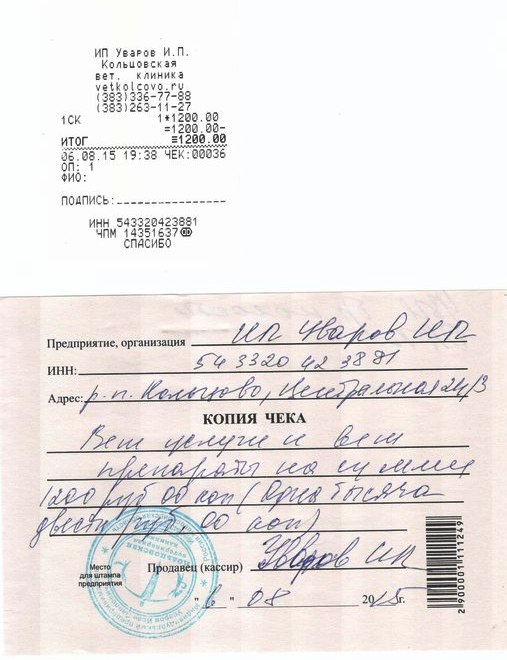 ИП Уваров И.П.
Кольцовская
вет. клиника
vetkolcovo.ru
(383)336-77-88
(383)263-11-27
1СК 1*1200.00
=1200.00-
ИТОГ =1200.00
06.08.15 19:38 ЧЕК:00036
ОП: 1
ФИО:
ПОДПИСЬ:
ИНН 543320423881
ЧПМ 14351637
СПАСИБО
Предприятие, организация ИП Уваров ИП
ИНН: 543320423881
Адрес: р.п. Кольцово, Центральная 24/3
КОПИЯ ЧЕКА
Вет услуги и вет
препараты на сумму
1200 руб 00 коп (Одна тысяча
двести руб. 00 коп)
Место
для штампа
предприятия
Продавец (кассир) Уваров ИП
"6" 08 2015г.
2 900001 111249